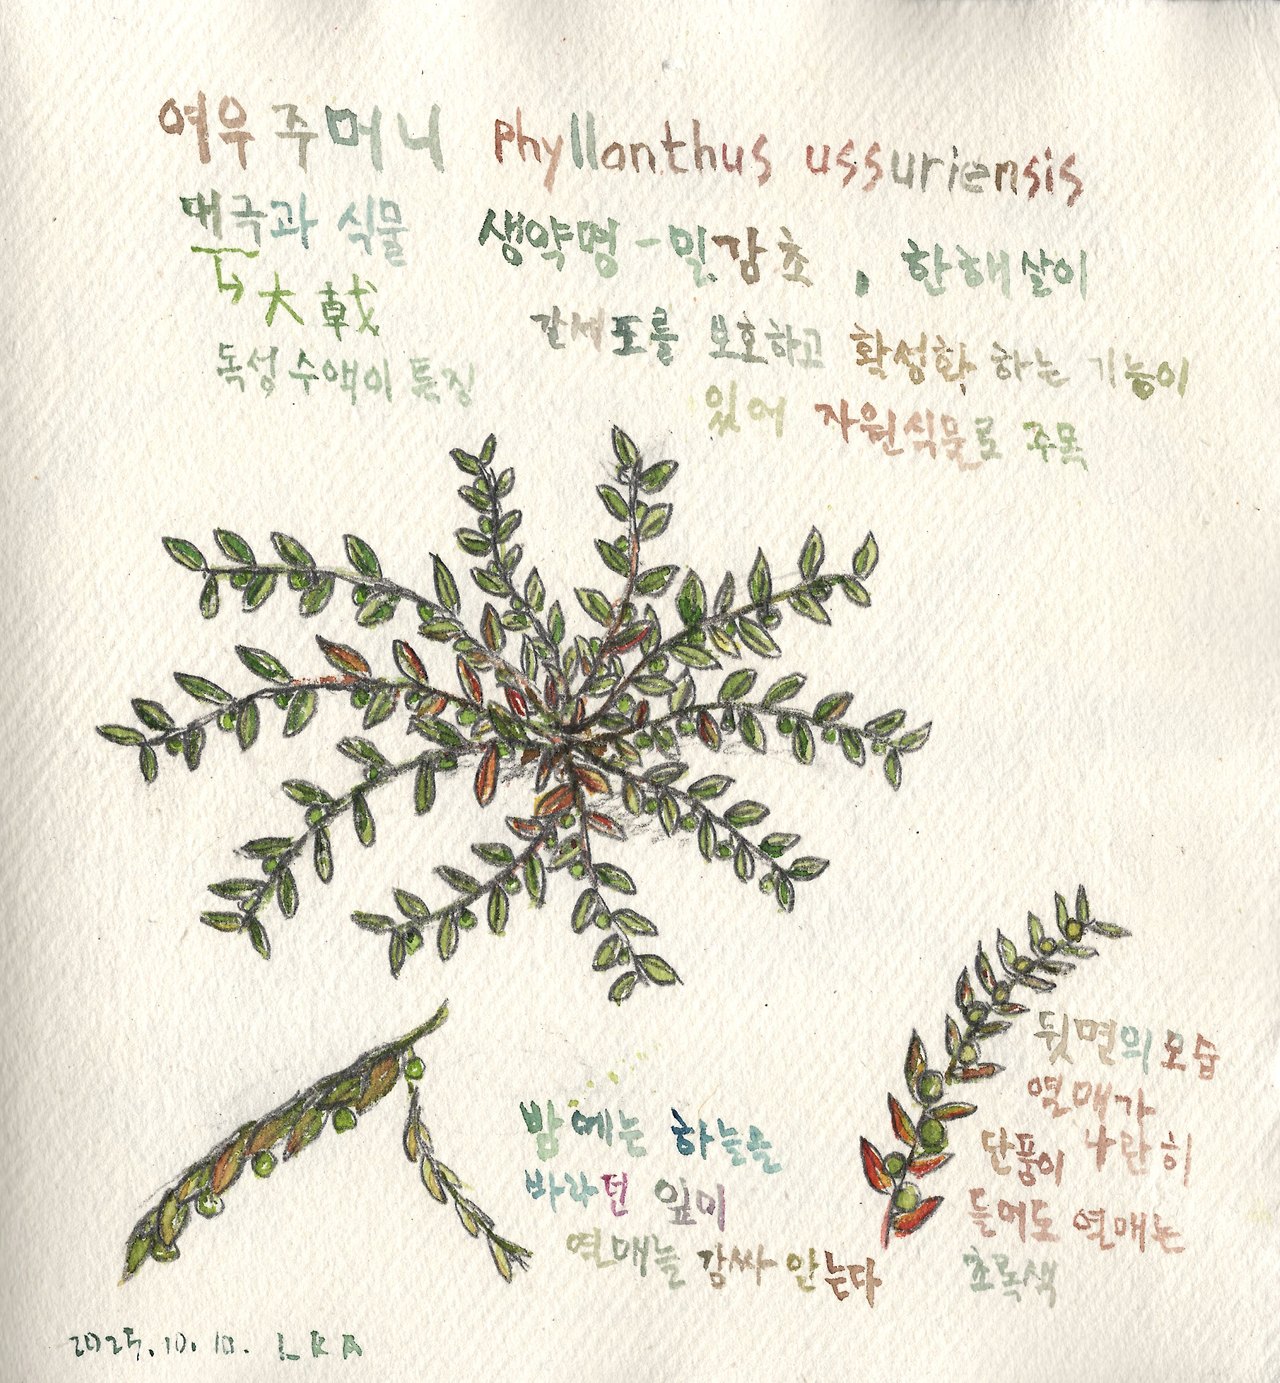 여우주머니 Phyllanthus ussuriensis
대극과 식물
大戟
독성수액이 특징
생약명-밀감초, 한해살이
간세포를 보호하고 활성화 하는 기능이
있어 자원식물로 주목
뒷면의 모습
열매가
나란히
단풍이
들어도 열매는
초록색
밤에는 하늘을
바라던 잎이
열매를 감싸 안는다
2025.10.10. LKA